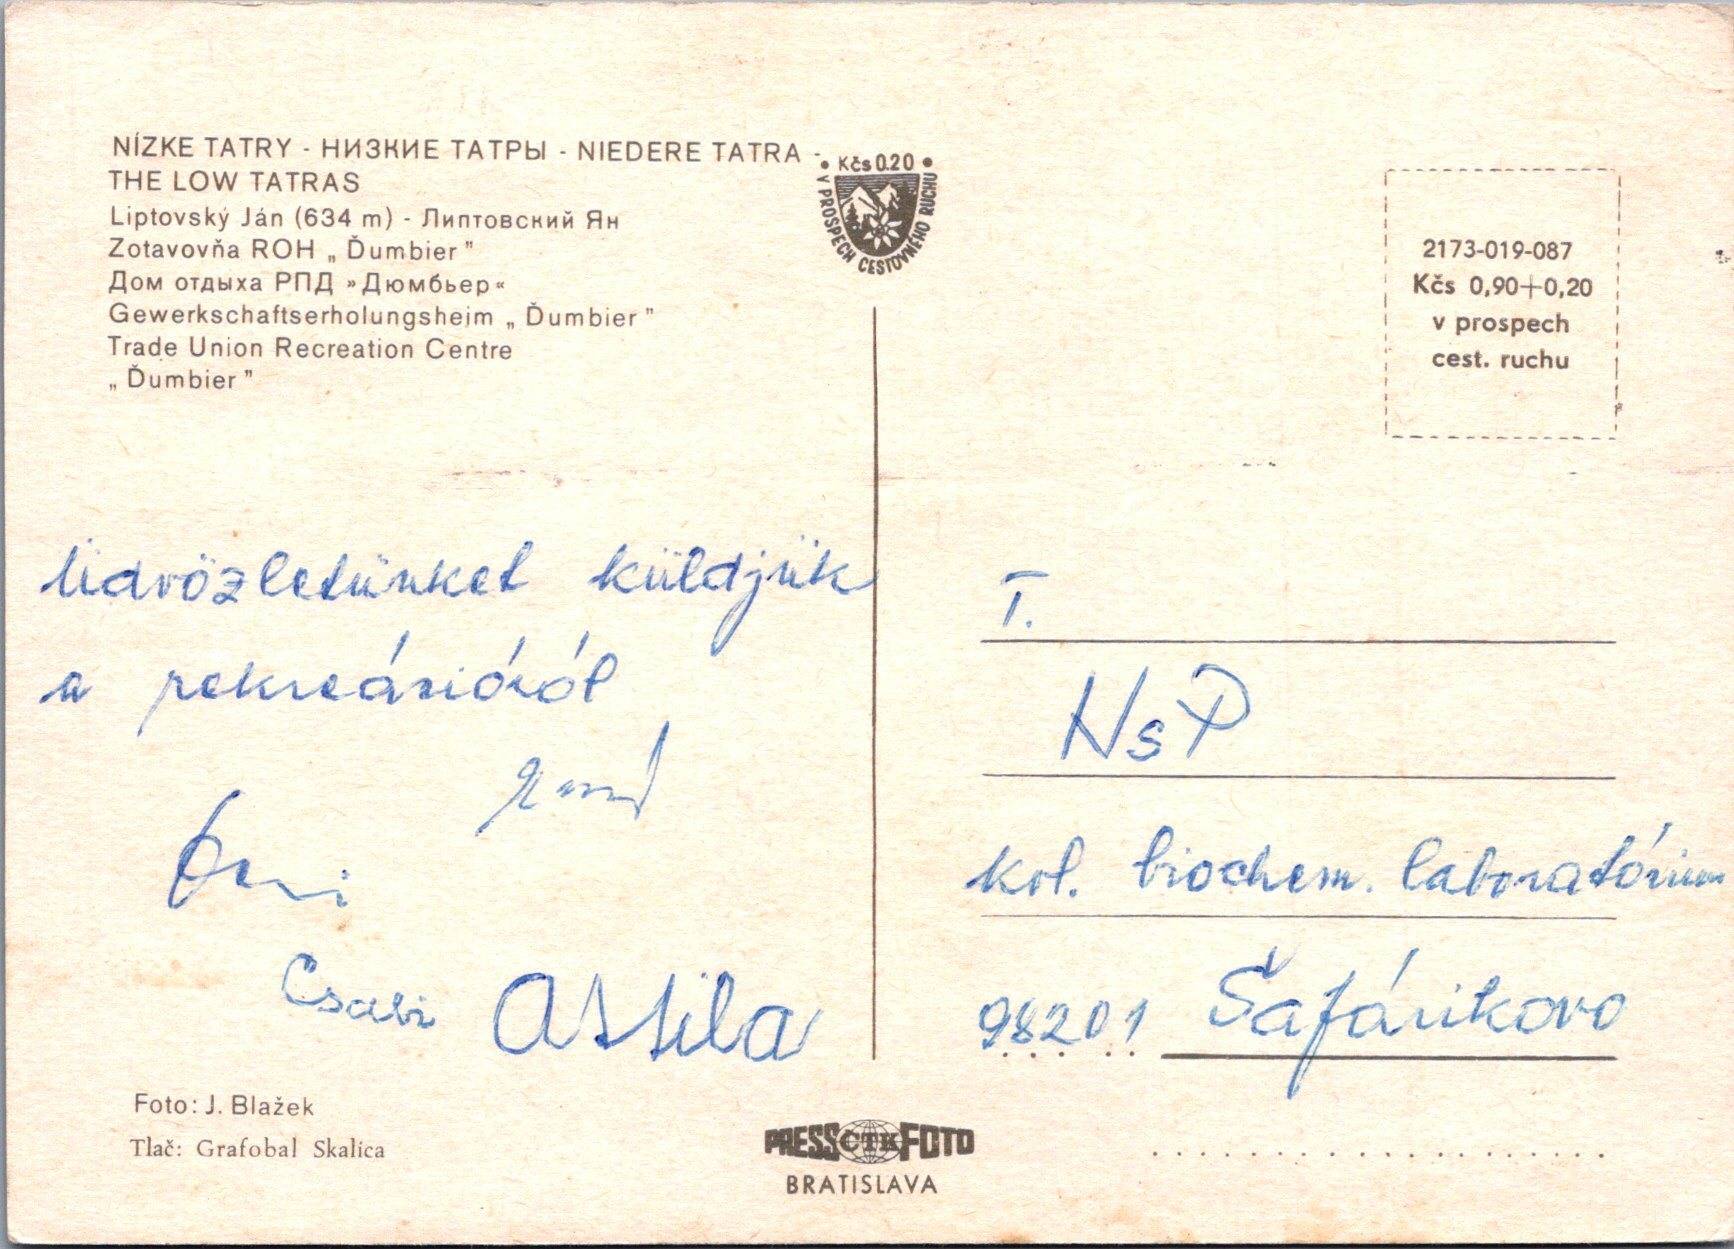 NÍZKE TATRY - НИЗКИЕ ТАТРЫ - NIEDERE TATRA -
THE LOW TATRAS
Liptovský Ján (634 m) - Липтовский Ян
Zotavovňa ROH „ Ďumbier ”
Дом отдыха РПД »Дюмбьер«
Gewerkschaftserholungsheim „ Ďumbier ”
Trade Union Recreation Centre
„ Ďumbier ”
• Kčs 0.20 •
V PROSPECH CESTOVNÉHO RUCHU
2173-019-087
Kčs 0,90+0,20
v prospech
cest. ruchu
Üdvözletünket küldjük
a
Csabi Attila
T.
NsP
kol. biochem. laboratórium
98201 Šafárikovo
Foto: J. Blažek
Tlač: Grafobal Skalica
PRESS ČTK FOTO
BRATISLAVA